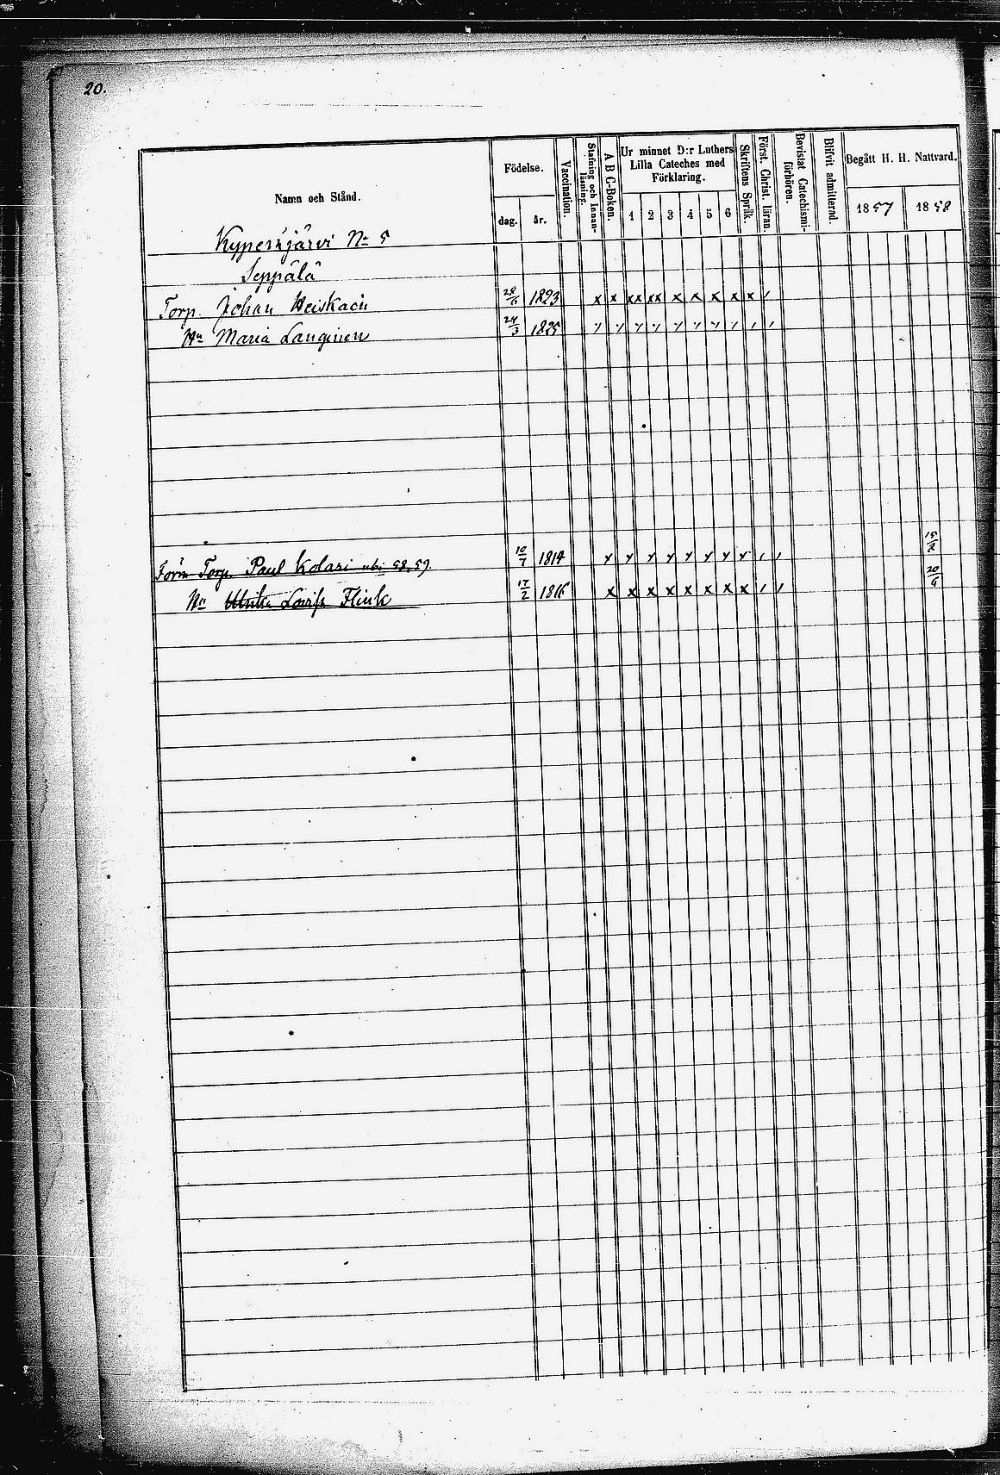 20.
Namn och Stånd.
Födelse.
dag.
år.
Vaccination.
Stafning och Innanläsning.
A B C-Boken.
Ur minnet D:r Luthers
Lilla Cateches med
Förklaring.
1 2 3 4 5 6
Skriftens Språk.
Först. Christ. läran.
Bevistat Catechismiförhören.
Blifvit admitterad.
Begått H. H. Nattvard.
1857 1858
N:o 5
Seppälä
Torp. Johan Heiskain 1823 x x xx xx x x x x x
Maria Languinen 24/3 1825
Förra Torp. Paul Kolari 10/7 1814
Flink 17/2 1816 x x x x x x x x